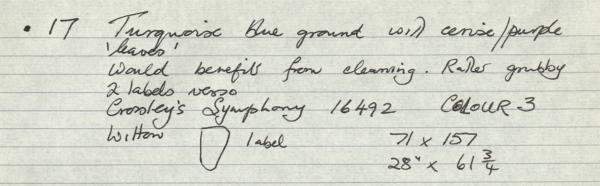 • 17 Turquoise blue ground with cerise/purple
'leaves'
Would benefit from cleaning. Rather grubby
2 labels verso
Crossley's Symphony 16492 COLOUR 3
Wilton label 71 x 157
28" x 61 3/4